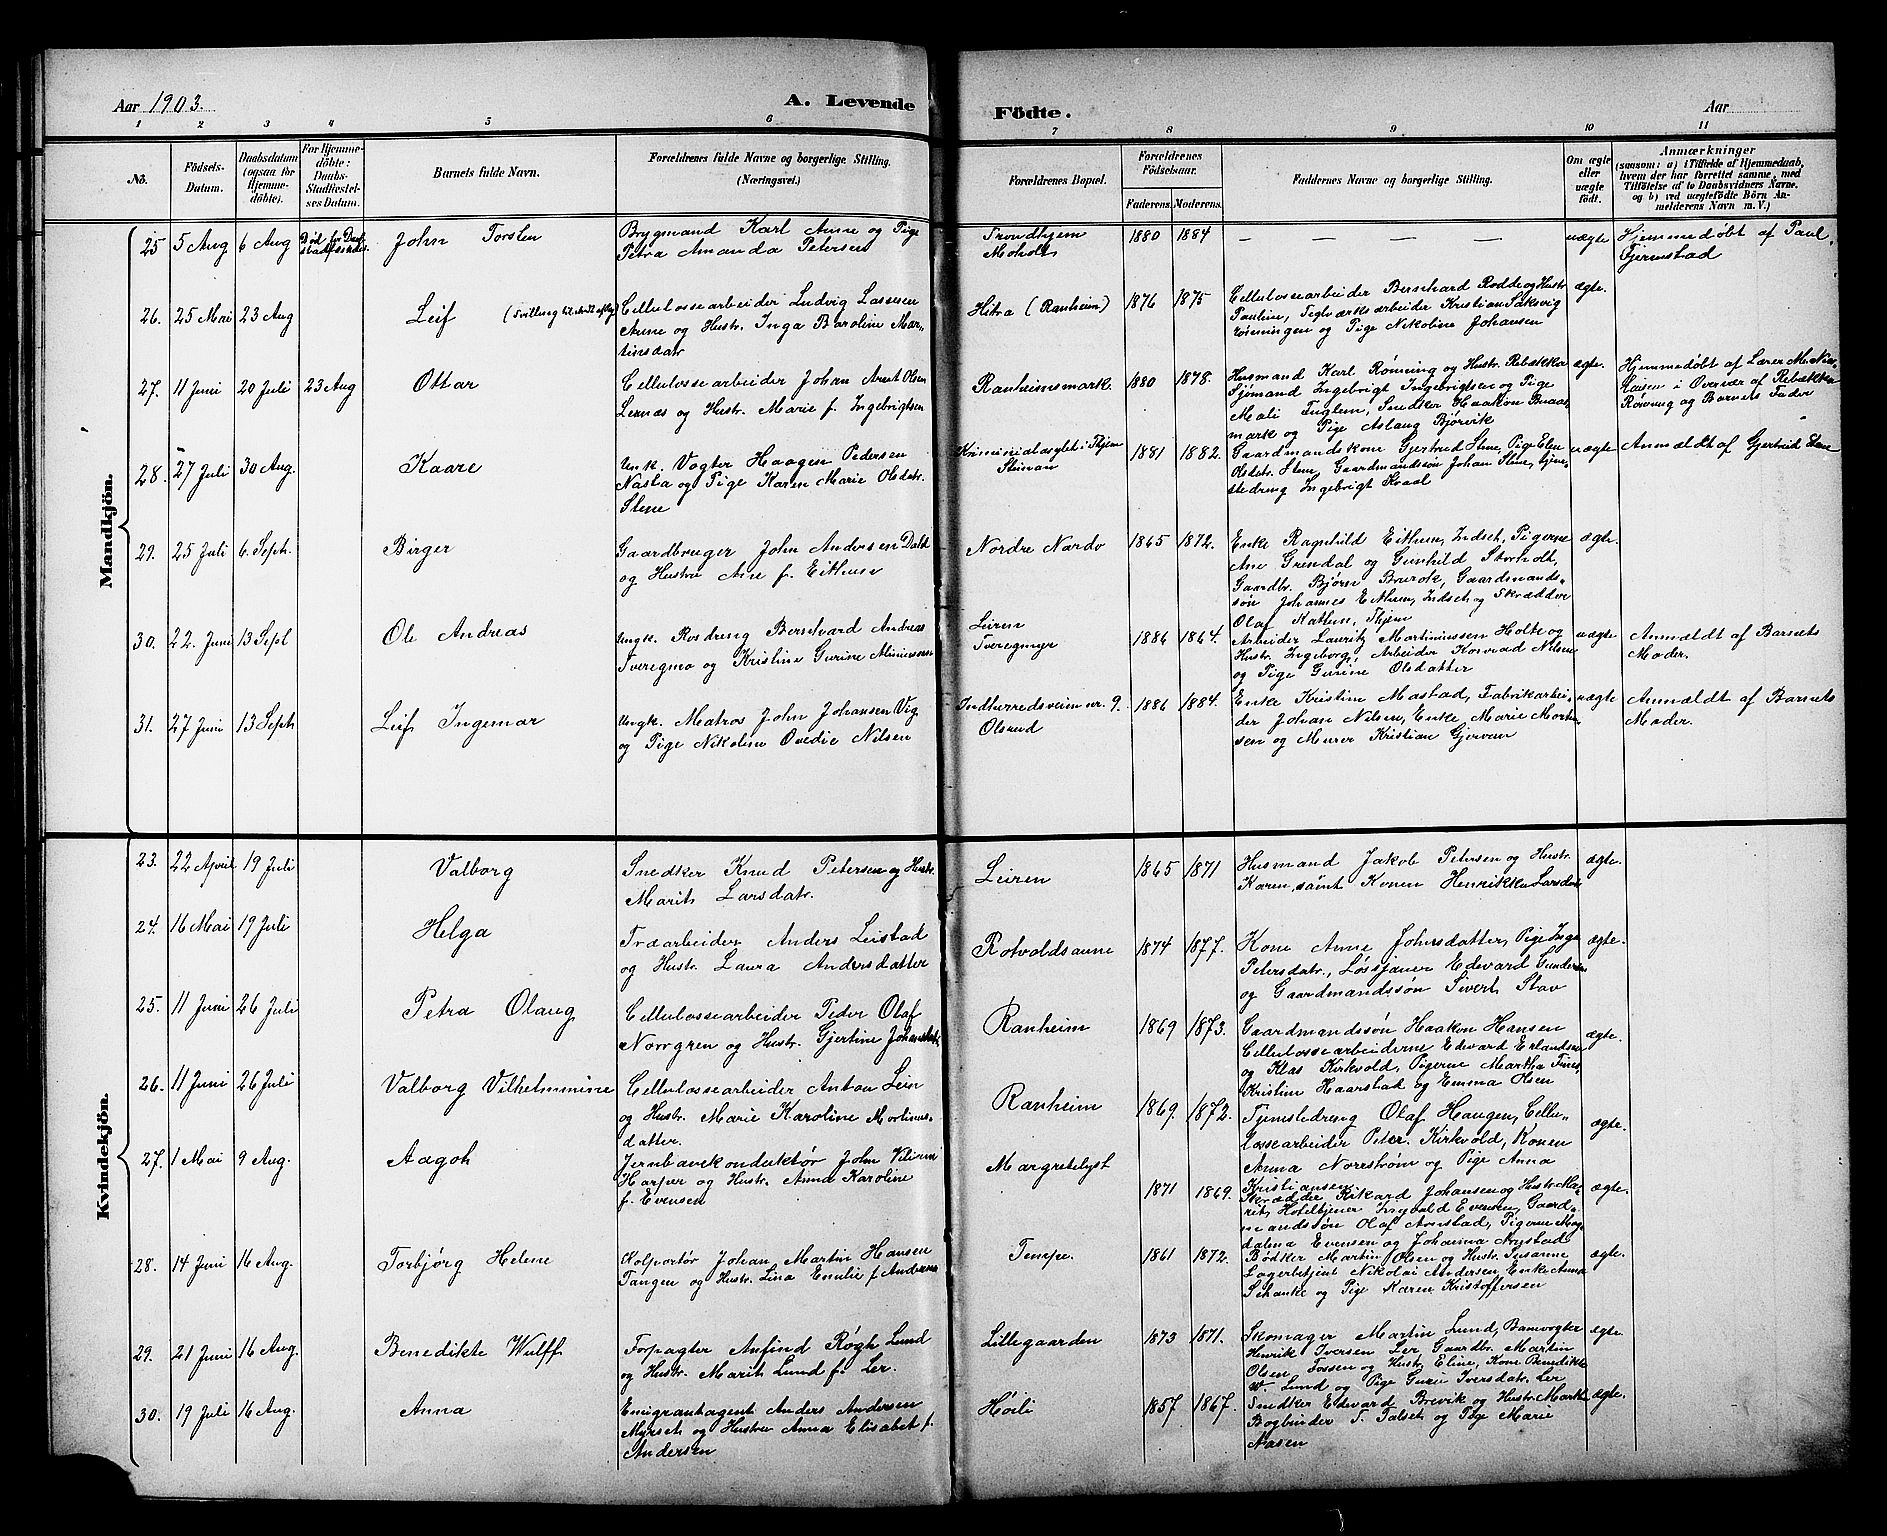 Aar 1903.
A. Levende Födte.
Aar
1 2 3 4 5 6 7 8 9 10 11
No.
Födsels-Datum.
Daabsdatum (ogsaa for Hjemme-döbte).
For Hjemme-döbte: Daabs-Stadfæstel-ses Datum.
Barnets fulde Navn.
Forældrenes fulde Navne og borgerlige Stilling.
(Næringsvei.)
Forældrenes Bopæl.
Forældrenes Födselsaar.
Faderens. Moderens.
Faddernes Navne og borgerlige Stilling.
Om ægte eller uægte födt.
Anmærkninger
(saasom: a) i Tilfælde af Hjemmedaab,
hvem der har forrettet samme, med
Tilföielse af to Daabsvidners Navne.
og b) ved uægtefödte Börn An-
melderens Navn m. V.)
Mandkjön.
25 5 Aug 6 Aug Död før Daab stadfæstedes John Torsten
Brygmand Karl Anne og Pige
Petra Amanda Petersen
Trondhjem
Moholt
1880 1884 — — — — uægte
Hjemmedøbt af Paul
Fjermstad
26. 25 Mai 23 Aug Leif
Cellulossearbeider Ludvig Lassesen
Aune og Hustr. Inga Baroline Mar-
tinsdatr
Hitra (Ranheim) 1876 1875
Cellulossearbeider Bernhard Rodde og Hustr
Pauline, Teglværksarbeider Kristian Saksvig
rønningen og Pige Nikoline Johansen
ægte.
27. 11 Juni 20 Juli 23 Aug Ottar
Cellulossearbeider Johan Arnt Olsen
Lernæs og Hustr. Marie f. Ingebrigtsen
Ranheimsmark. 1880 1878.
Husmand Karl Rønning og Hustr. Rebækka
Sjømand Ingebrigt Ingebrigtsen og Pige
Mali Fuglem, Snedker Haakon Buaas
mark og Pige Aslaug Bjørvik
ægte.
Hjemmedøbt af Lærer M. Nik-
laisen i Overvær af Rebækka
Rønning og Barnets Fader
28. 27 Juli 30 Aug. Kaare
Unk. Vogter Haagen Pedersen
Nasta og Pige Karen Marie Olsdatr.
Stene
Kriminalasylet i Thjem
Steinan
1881 1882.
Gaardmandskone Gjertrud Stene, Pige Elen
Olsdatr. Stene, Gaardmandssøn Johan Stene, tjene
stedreng Ingebrigt Kvaal
uægte
Anmældt af Gjertrud Stene
29. 25 Juli 6. Sept. Birger
Gaardbruger John Andersen Dahl
og Hustru Ane f. Eithun
Nordre Nardo 1865 1872.
Enke Ragnhild Eithun, Indset, Pigerne
Ane Grendal og Gunhild Storholt,
Gaardbr. Bjørn Brurok, Gaardmands-
søn Johannes Eithun, Indset og Skrædder
Olaf Kathen, Thjem
ægte.
30. 22. Juni 13 Sept Ole Andreas
Ungk. Rosdreng Berntvard Andreas
Tveregmo og Kristine Gurine
Leiren
Tveregmyr
1886 1864.
Arbeider Lauritz Martiniussen Holte og
Hustr. Ingeborg, Arbeider Konrad Nilsen
og Pige Gurine Olsdatter
uægte
Anmældt af Barnets
Moder.
31. 27 Juni 13 Sept Leif Ingemar
Ungk. Matros John Johansen Vig
og Pige Nikoline Ovedie Nilsen
Indherredsveien nr. 9.
Olsrud
1886 1884.
Enke Kristine Mostad, Fabrikarbei-
der Johan Nilsen, Enke Marie Morten
sen og Murer Kristian Gjervan
uægte
Anmældt af Barnets
Moder.
Kvindekjön.
23. 22 April 19 Juli Valborg
Snedker Knud Petersen og Hustr.
Marit Larsdatr.
Leiren 1865 1871
Husmand Jakob Petersen og Hustr.
Karen, samt Konen Henrikke Larsdtr
ægte.
24. 16 Mai 19 Juli Helga
Træarbeider Anders Leistad
og Hustr. Laura Andersdatter
Rotvoldsaune 1874 1877.
Kone Anne Johnsdatter, Pige Inga
Petersdatr., Løssjauer Edevard Gundersen
og Gaardmandssøn Sivert Stav
ægte.
25. 11 Juni 26 Juli Petra Olaug
Cellulossearbeider Peder Olaf
Norrgren og Hustr. Gjertine Johansdatr
Ranheim 1869 1873.
Gaardmandssøn Haakon Hansen
Cellulossearbeiderne Edevard Erlandsen
og Klas Kirkvold, Pigerne Martha Fines
Kristine Haarstad og Emma Olsen
ægte.
26. 11 Juni 26 Juli Valborg Vilhelmmine
Cellulossearbeider Anton Lein
og Hustr. Marie Karoline Mortins-
datter.
Ranheim 1869. 1872.
Tjenestedreng Olaf Haugen, Cellu-
lossearbeider Peter Kirkvold, Konen
Anna Norestrøm og Pige Anna
Kristiansen
ægte.
27. 1 Mai 9 Aug. Aagot
Jernbanekonduktør John
Harper og Hustr. Anna Karoline
f. Evensen
Margretelyst 1871 1869.
Skrædder Rikard Johansen og Hustr. Ma-
rit, Hoteltjener Ingvald Evensen, Gaard-
mandssøn Olaf Anstad, Pigerne Mag-
dalena Evensen og Johanna Anstad
ægte.
28. 14 Juni 16 Aug. Torbjørg Helene
Kolportør Johan Martin Hansen
Tangen og Hustr. Lina Emilie f. Andersen
Tempe. 1861 1872.
Bødker Martin Olsen og Hustr. Susanne
Lagerbetjent Nikolai Andersen, Enke Anna
Schanke og Pige Karen Kristoffersen
ægte.
29. 21 Juni 16 Aug. Benedikte Wulff
Forpagter Anfind Røgh Lund
og Hustr. Marit Lund f. Ler.
Lillegaarden 1873 1871.
Skomager Martin Lund, Banevogter
Henrik Iversen Ler Gaardbr. Martin
Olsen Fossen og Hustr. Eline, Kone Benedikte
W. Lund og Pige Guru Iversdatr. Ler
ægte.
30. 19 Juli 16 Aug. Anna
Emigrantagent Anders Andersen
Myrset og Hustru Anna Elisabet f.
Andersen
Høili 1857 1867.
Snedker Edevard Brevik og Hustr. Marth
Bogbinder T. Talset og Pige Marie
Aasen
ægte.